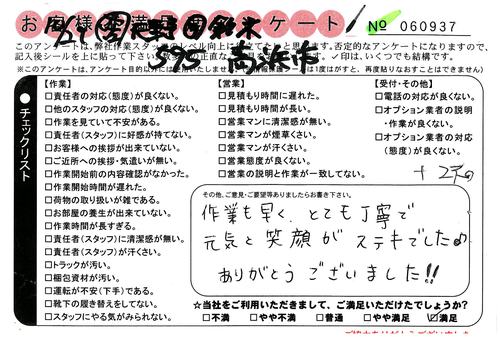 お客様満足度アンケート
No 060937
このアンケートは、弊社作業スタッフのレベル向上に
否定的なアンケートになりますので、
記入後シールを上に貼って下さい
✓印は、いくつでも結構です。
(※このアンケートは、アンケート目的以外には使用いたしません。
シールは1度はがすと、再度貼りなおすことはできません)
チェックリスト
【作業】
□責任者の対応(態度)が良くない。
□他のスタッフの対応(態度)が良くない。
□作業を見ていて不安がある。
□責任者(スタッフ)に好感が持てない。
□お客様への挨拶が出来ていない。
□ご近所への挨拶・気遣いが無い。
□作業開始前の内容確認がなかった。
□作業開始時間が遅れた。
□荷物の取り扱いが雑である。
□お部屋の養生が出来ていない。
□作業時間が長すぎる。
□責任者(スタッフ)に清潔感が無い。
□責任者(スタッフ)が汗くさい。
□トラックが汚い。
□梱包資材が汚い。
□運転が不安(下手)である。
□靴下の履き替えをしてない。
□スタッフにやる気がみられない。
【営業】
□見積もり時間に遅れた。
□見積もり時間が長い。
□営業マンに清潔感が無い。
□営業マンが煙草くさい。
□営業マンが汗くさい。
□営業態度が良くない。
□営業の説明と作業が一致してない。
【受付・その他】
□電話の対応が良くない。
□オプション業者の説明
・作業が良くない。
□オプション業者の対応
(態度)が良くない。
その他、ご意見・ご要望等ありましたらお書き下さい。
作業も早く、とても丁寧で
元気と笑顔が ステキでした♪
ありがとう ございました!!
☆当社をご利用いただきまして、ご満足いただけたでしょうか?
□不満 □やや不満 □普通 □やや満足 ☑満足